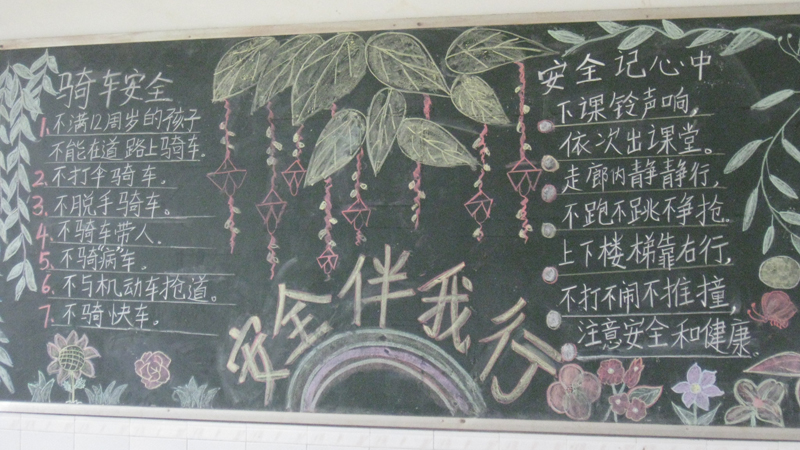 骑车安全
1、不满12周岁的孩子
不能在道路上骑车.
2、不打伞骑车.
3、不脱手骑车。
4、不骑车带人.
5、不骑"病"车.
6、不与机动车抢道。
7、不骑快车.
安全伴我行
安全记心中
下课铃声响,
依次出课堂。
走廊内静静行,
不跑不跳不争抢.
上下楼梯靠右行,
不打不闹不推撞,
注意安全和健康.